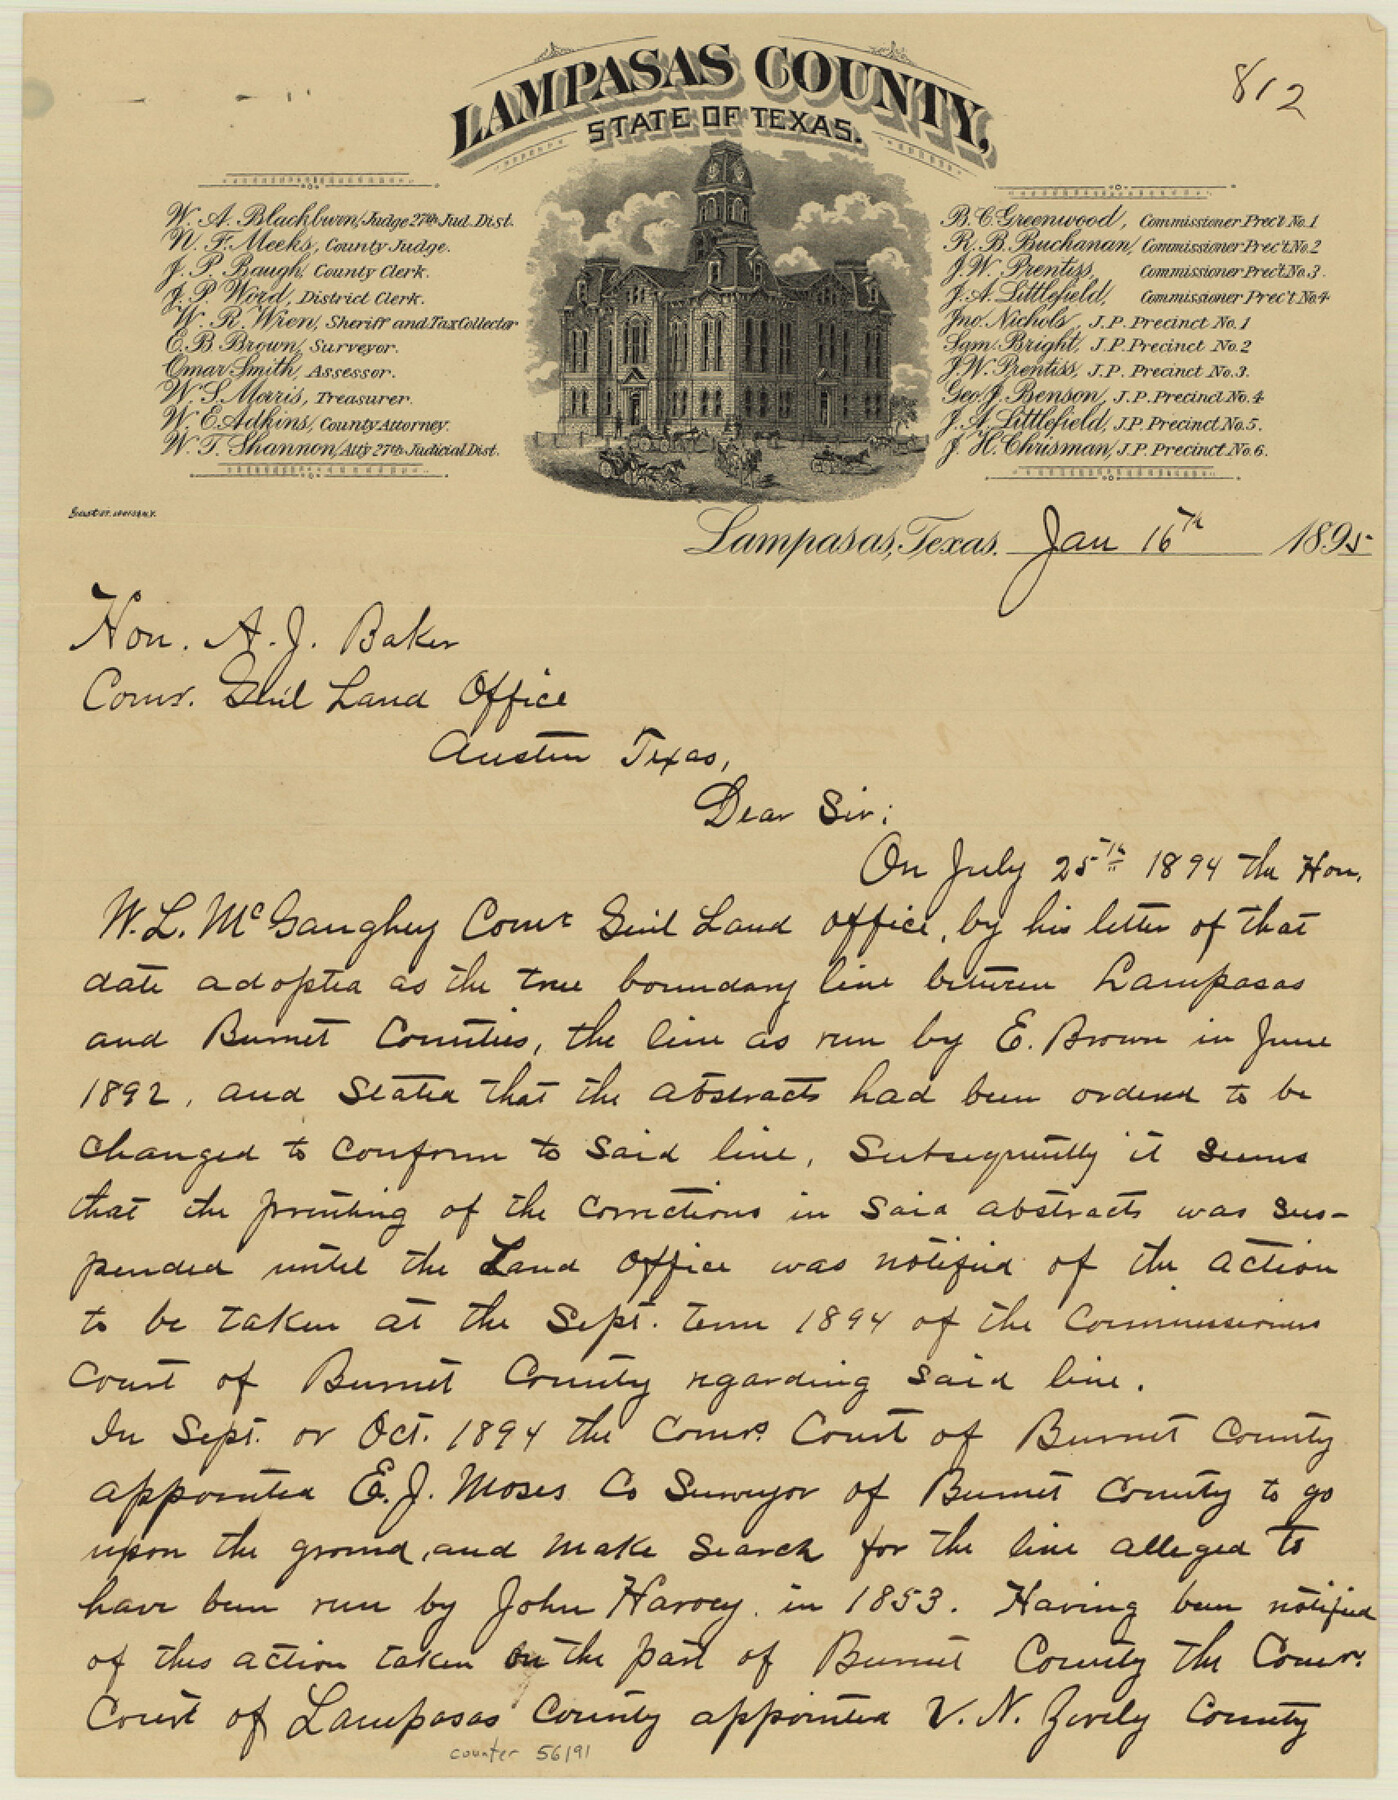 812
LAMPASAS COUNTY,
STATE OF TEXAS.
W. A. Blackburn, Judge 27th Jud. Dist.
W. F. Meeks, County Judge.
J. P. Baugh, County Clerk.
J. P. Word, District Clerk.
W. R. Wren, Sheriff and Tax Collector
E. B. Brown, Surveyor.
Omar Smith, Assessor.
W. S. Morris, Treasurer.
W. E. Adkins, County Attorney.
W. T. Shannon, Att'y 27th Judicial Dist.
B. C. Greenwood, Commissioner Prec't No. 1
R. B. Buchanan, Commissioner Prec't No. 2
J. W. Prentiss, Commissioner Prec't No. 3.
J. A. Littlefield, Commissioner Prec't No. 4
Jno. Nichols, J. P. Precinct No. 1
Sam. Bright, J. P. Precinct No. 2
J. W. Prentiss, J. P. Precinct No. 3.
Geo. J. Benson, J. P. Precinct No. 4
J. A. Littlefield, J. P. Precinct No. 5.
J. H. Chrisman, J. P. Precinct No. 6.
Lampasas, Texas. Jan 16th 1895
Hon. A. J. Baker
Comr. Genl Land Office
Austin Texas,
Dear Sir:
On July 25th 1894 the Hon.
W. L. McGaughey Comr Genl Land office, by his letter of that
date adopted as the true boundary line between Lampasas
and Burnet Counties, the line as run by E. Brown in June
1892, and stated that the abstracts had been ordered to be
changed to conform to said line, Subsequently it seems
that the printing of the corrections in said abstracts was sus-
pended until the Land office was notified of the action
to be taken at the Sept. term 1894 of the Commissioners
Court of Burnet County regarding said line.
In Sept. or Oct. 1894 the Comrs. Court of Burnet County
appointed E. J. Moses Co Surveyor of Burnet County to go
upon the ground, and make search for the line alleged to
have been run by John Harvey in 1853. Having been notified
of this action taken on the part of Burnet County the Comr.
Court of Lampasas County appointed V. N. Zively County
counter 56191